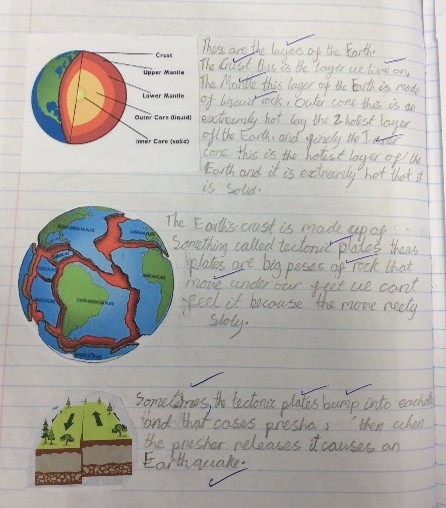 Crust
Upper Mantle
Lower Mantle
Outer Core (liquid)
Inner Core (solid)
These are the layers of the Earth.
The Crust this is the layer we live on,
The Mantle this layer of the Earth is made
of liquid rock. Outer core this is an
extremely hot lay the 2 hotest layer
of the Earth. and finely the Inner
core this is the hotest layer of the
Earth and it is extremly hot that it
is solid.
The Earth's crust is made up of
Something called tectonic plates theas
plates are big peses of rock that
move under our feet we cant
feel it because the move
sloly.
Sometimes, the tectonic plates bump into
and that cases presha then when
the presher releases it causes an
Earthquake.